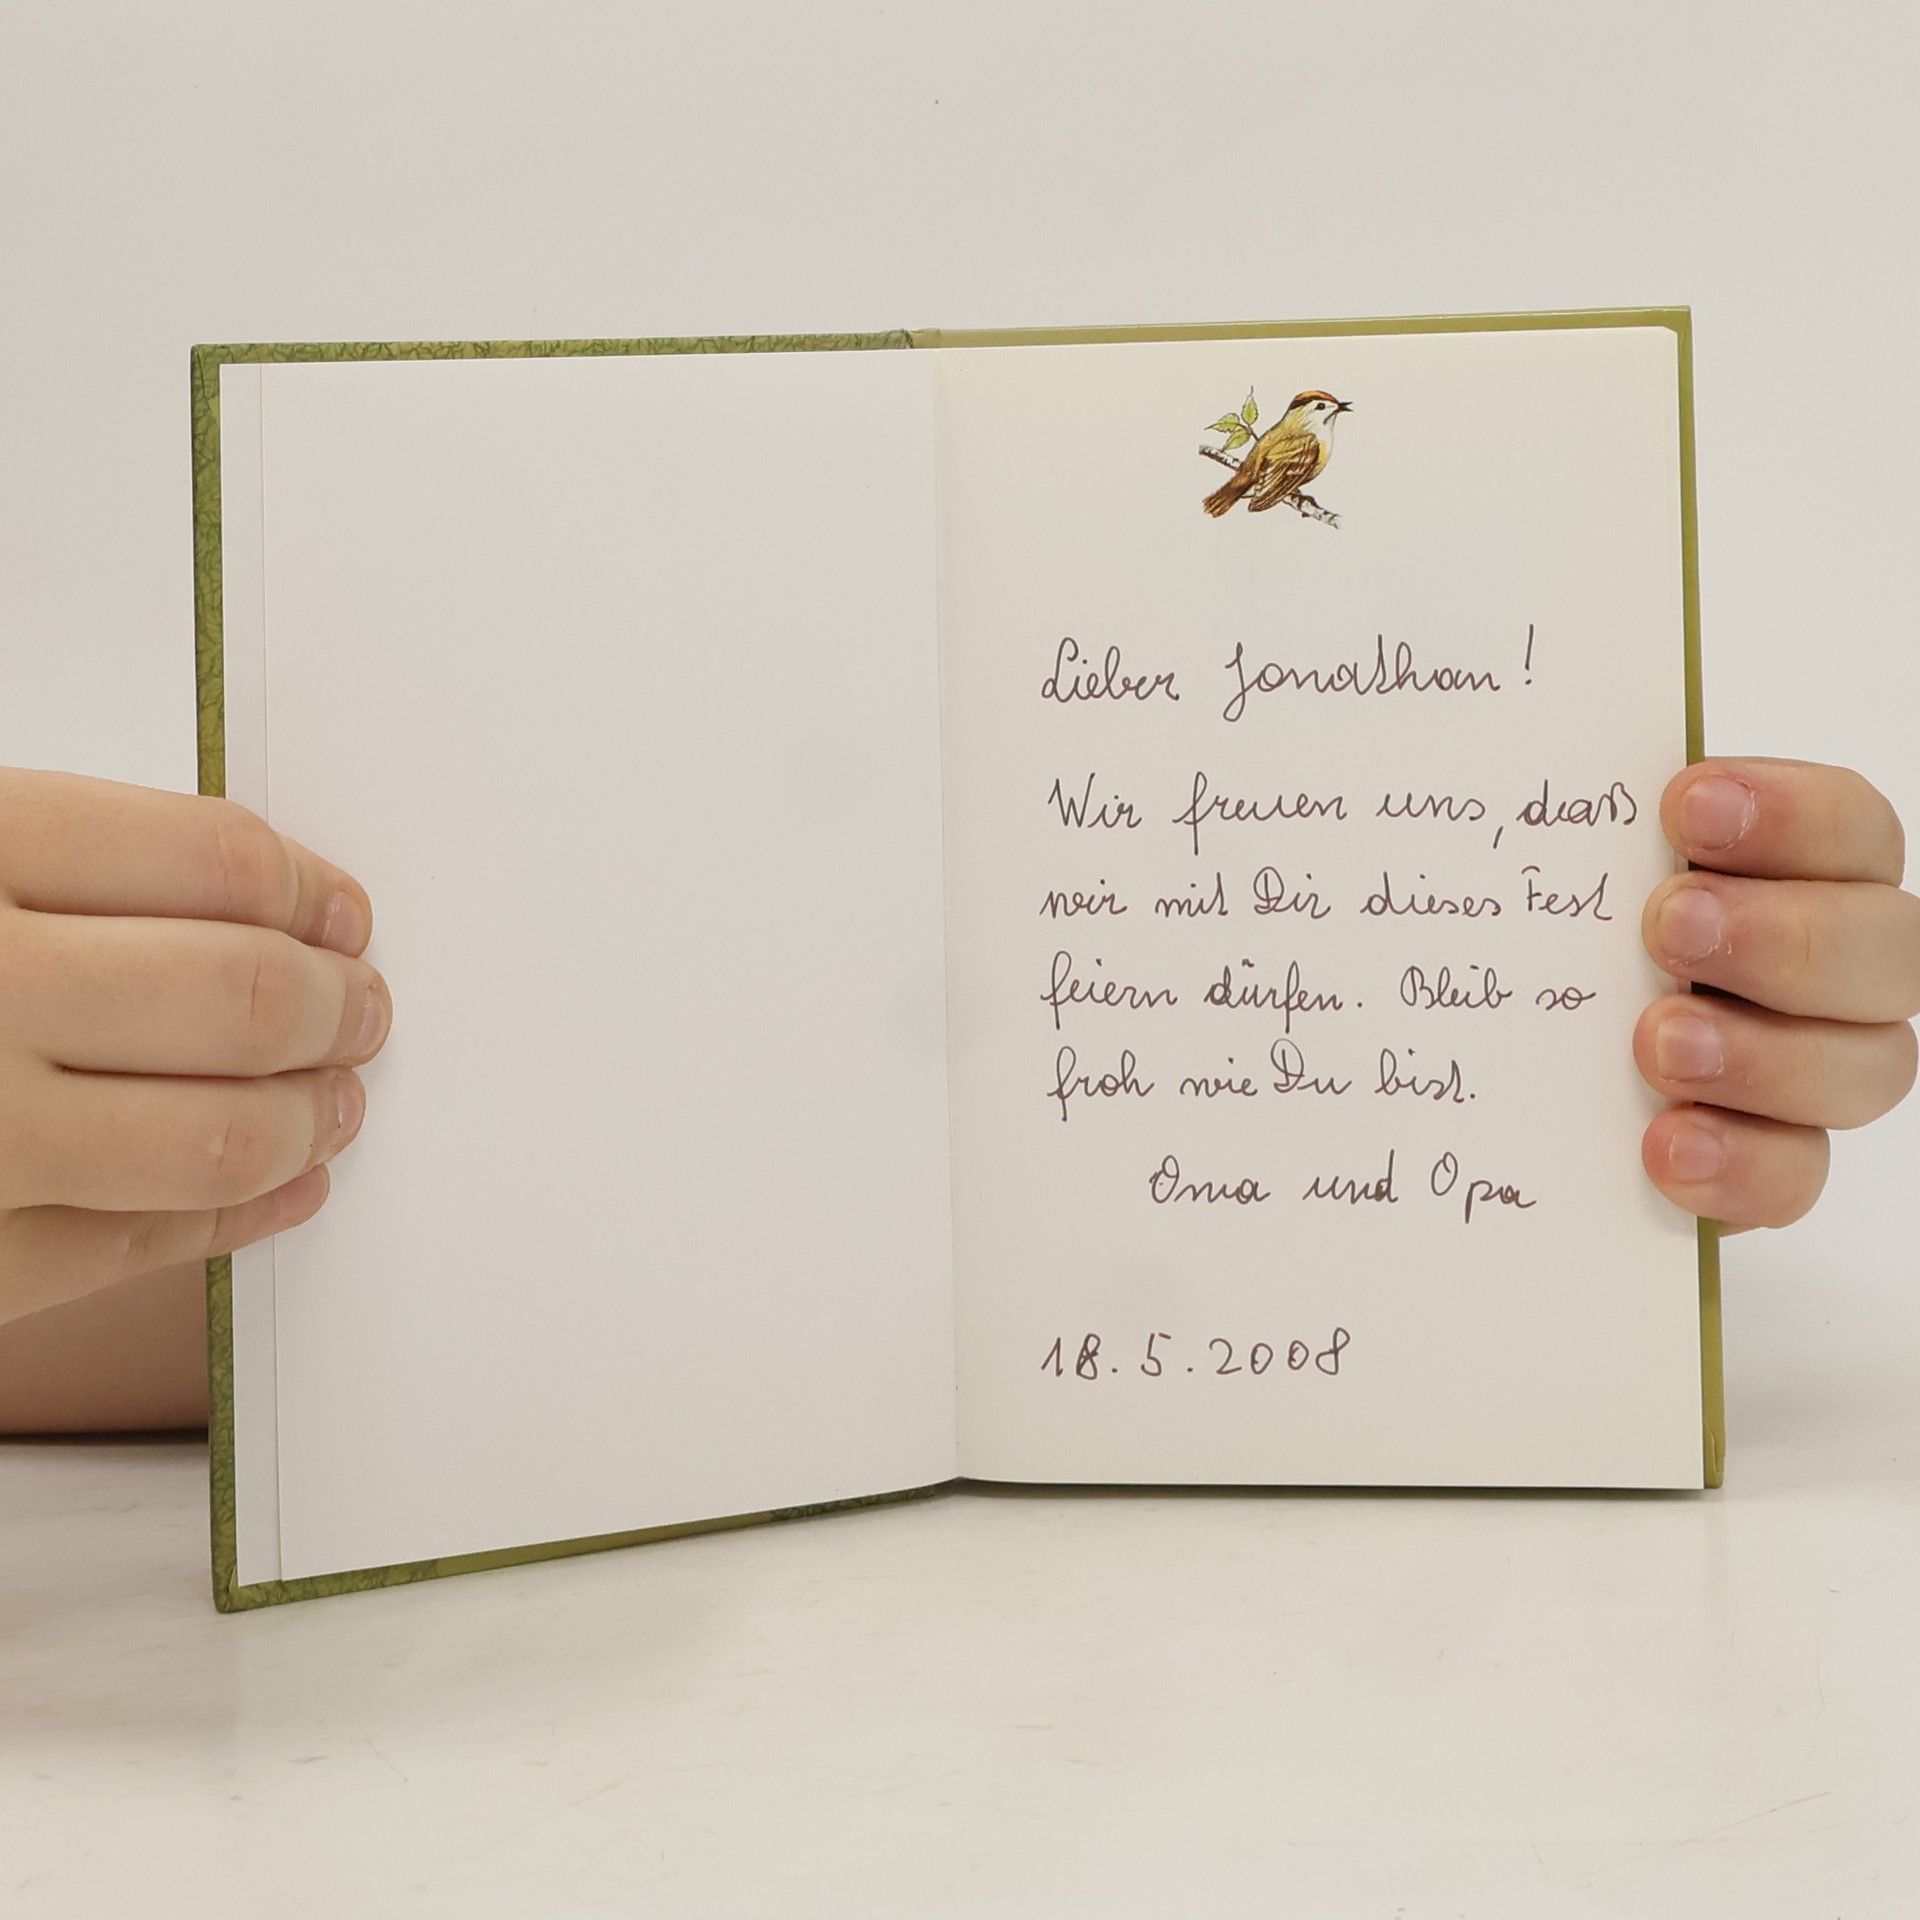 Lieber Jonathan!
Wir freuen uns, daß
wir mit Dir dieses Fest
feiern dürfen. Bleib so
froh wie Du bist.
Oma und Opa
18.5.2008